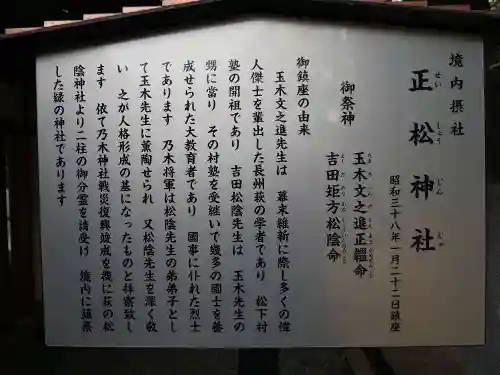 境内摂社
正松神社
せいしょうじんじゃ
昭和三十八年一月二十二日鎮座
御祭神
玉木文之進正韞命
吉田矩方松陰命
御鎮座の由来
玉木文之進先生は 幕末維新に際し多くの偉
人傑士を輩出した長州萩の学者であり 松下村
塾の開祖であり 吉田松陰先生は 玉木先生の
甥に當り その村塾を受継いで幾多の國士を養
成せられた大教育者であり 國事に仆れた烈士
であります 乃木将軍は松陰先生の弟弟子とし
て玉木先生に薫陶せられ 又松陰先生を深く敬
い 之が人格形成の基になったものと拝察致し
ます 依て乃木神社戦災復興竣成を機に萩の松
陰神社より二柱の御分霊を請受け 境内に
した縁の神社であります